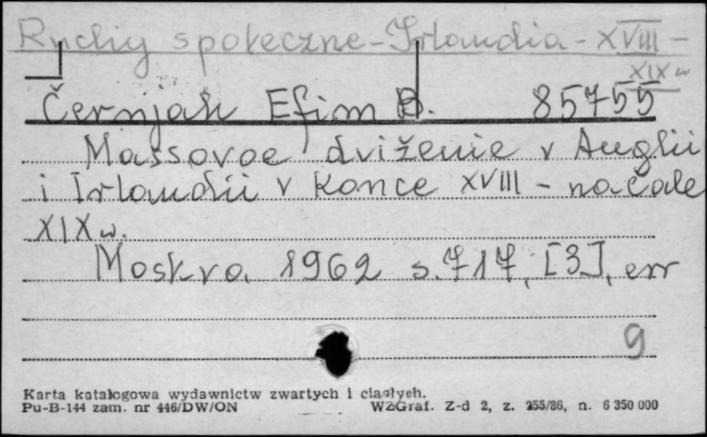 Ruchy społeczne - Irlandia - XVIII -
XIX w
Černjak Efim B. 85755
Massovoe dviženie v Anglii
i Irlandii v konce XVIII - načale
XIX w.
Moskva 1962 s. 717, [3], err
9
Karta katalogowa wydawnictw zwartych i ciągłych.
Pu-B-144 zam. nr 446/DW/ON WZGraf. Z-d 2, z. 255/86, n. 6 350 000